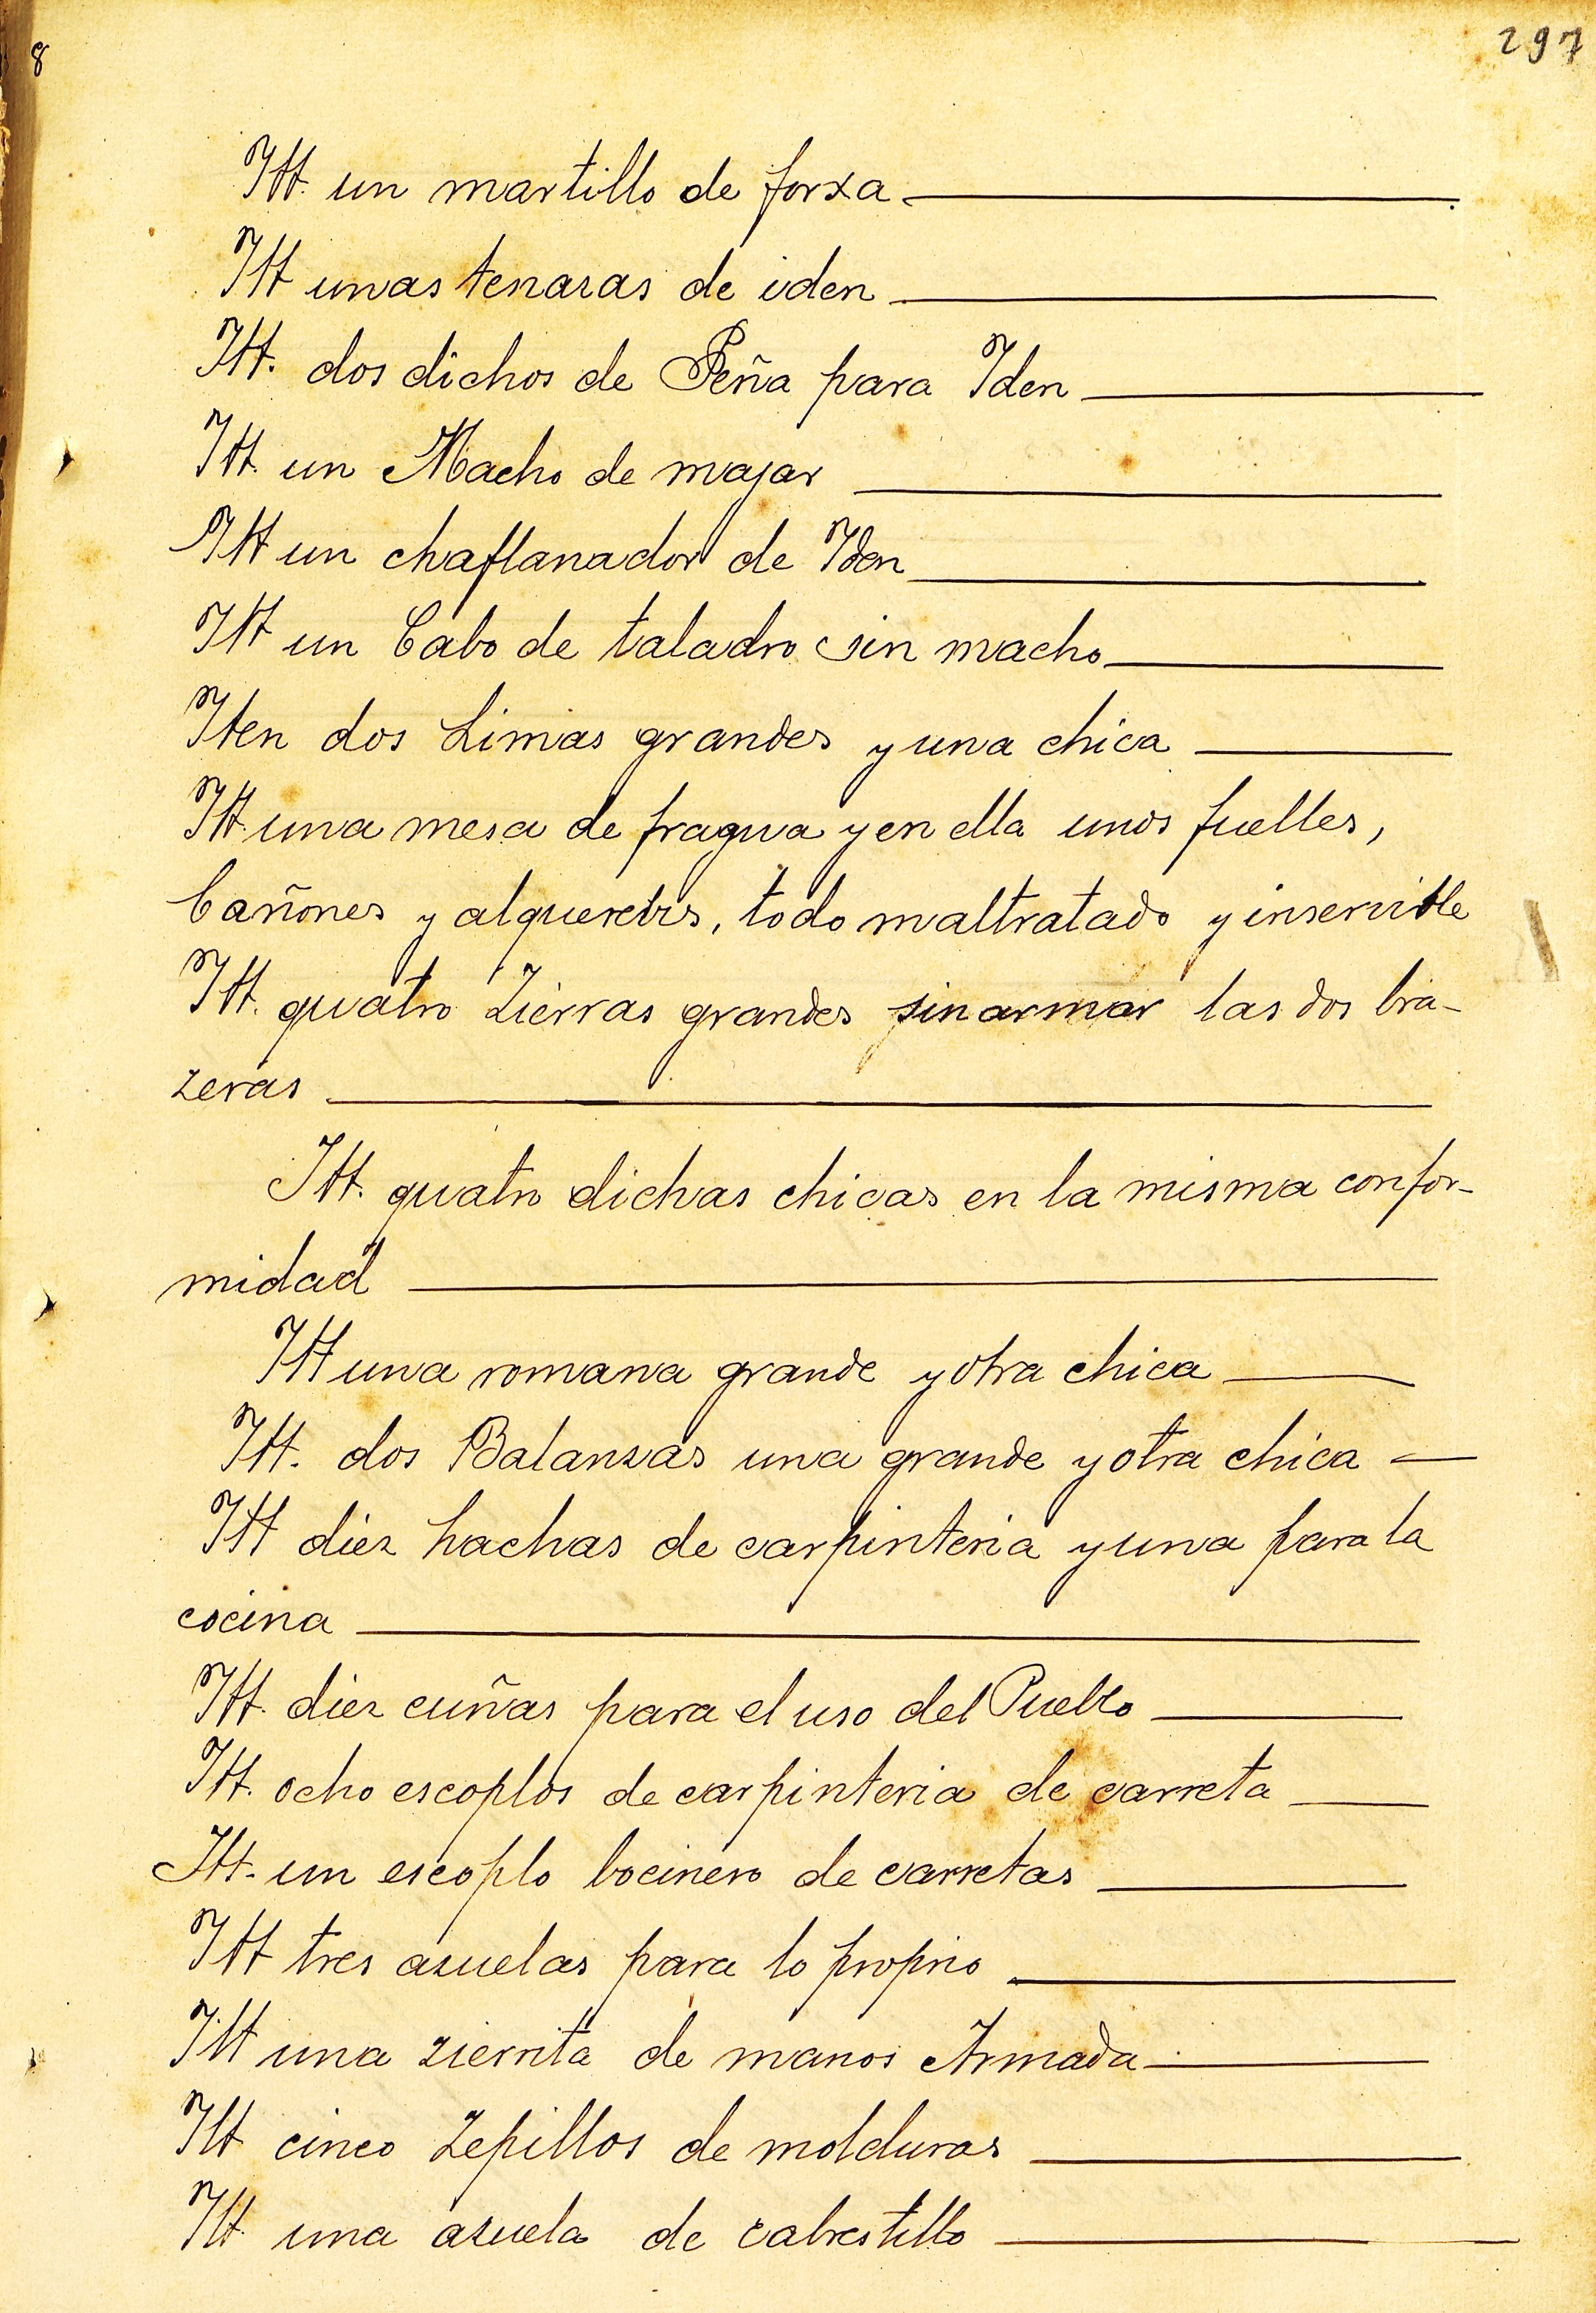 8
297
Itt. un martillo de forxa
Itt unas tenazas de iden
Itt. dos dichos de Peña para Iden
Itt. un Macho de majar
Itt un chaflanador de Iden
Itt un Cabo de taladro sin macho
Iten dos Limas grandes y una chica
Itt. una mesa de fragua y en ella unos fuelles,
Cañones y alquerebis, todo maltratado y inservible
Itt. quatro Zierras grandes sin armar las dos bra-
zeras
Itt. quatro dichas chicas en la misma confor-
midad
Itt una romana grande y otra chica
Itt. dos Balanzas una grande y otra chica
Itt diez hachas de carpinteria y una para la
cocina
Itt. diez cuñas para el uso del Pueblo
Itt. ocho escoplos de carpinteria de carreta
Itt. un escoplo bocinero de carretas
Itt tres azuelas para lo proprio
Itt una zierrita de manos Armada
Itt cinco Zepillos de molduras
Itt. una azuela de cabrestillo